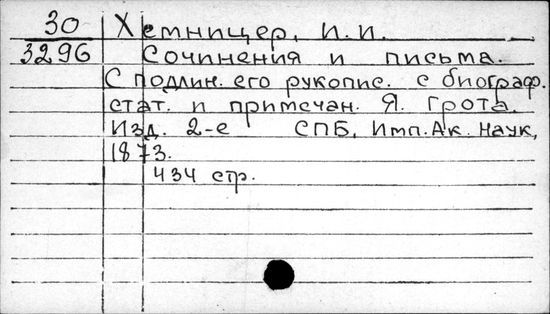 30 Хемницер, И. И.
3296 Сочинения и письма.
С подлин. его рукопис. с биограф.
стат. и примечан. Я. Грота.
Изд. 2-е СПБ, Имп. Ак. Наук,
1873.
434 стр.